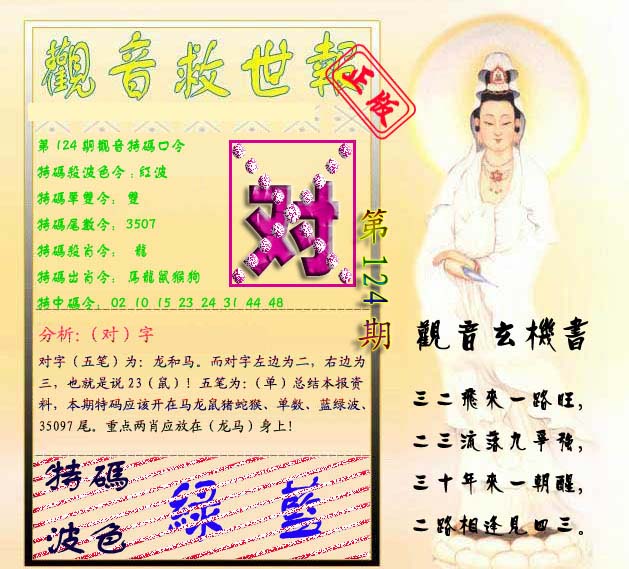 觀音救世報
正版
第124期觀音特碼口令
特碼殺波色令:紅波
特碼單雙令: 雙
特碼尾數令: 3507
特碼殺肖令: 龍
特碼出肖令: 馬龍鼠猴狗
特中碼令: 02 10 15 23 24 31 44 48
对
第124期
分析:（对）字
对字（五笔）为：龙和马。而对字左边为二，右边为
三，也就是说23（鼠）！五笔为:（单）总结本报资
料，本期特码应该开在马龙鼠猪蛇猴、单数、蓝绿波、
35097尾。重点两肖应放在（龙马）身上！
特碼
波色
綠 藍
觀音玄機書
三二飛來一路旺，
二三流落九爭強，
三十年來一朝醒，
二路相逢見四三。